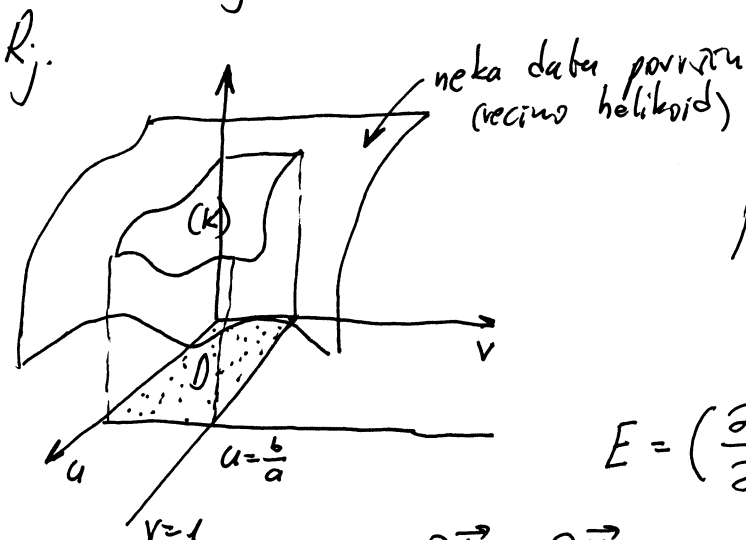 Rj.
neka data površin
(recimo helikoid)
(K)
D
v
u
u=b/a
v=1
E = ( ∂